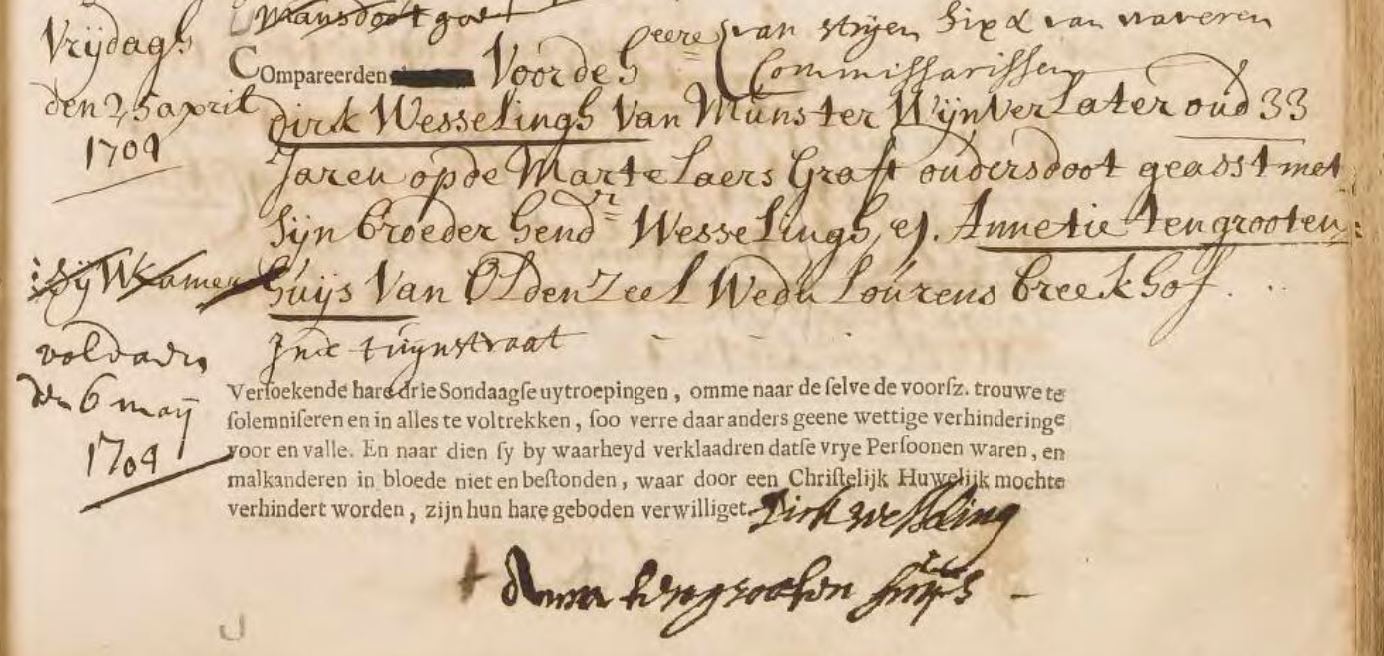 Mansdoot goet
Vrijdagh
den 25 april
1704
Heere van strijen Six & van waveren
Compareerden Voor de H Commissarissen
Dirk Wesselings Van Munster Wijnverlater oud 33
Jaren op de Martelaers Graft oudersdoot geasst met
sijn broeder Hendr Wesselings, ej. Annetie tengrooten:
:sij W kamer
huijs Van Oldenzeel Wedu Lourens breekhof.
Inde tuijnstraat
voldaen
den 6 maij
1704
Versoekende hare drie Sondaagse uytroepingen, omme naar de selve de voorsz. trouwe te
solemniseren en in alles te voltrekken, soo verre daar anders geene wettige verhinderinge
voor en valle. En naar dien sy by waarheyd verklaadren datse vrye Persoonen waren, en
malkanderen in bloede niet en bestonden, waar door een Christelijk Huwelijk mochte
verhindert worden, zijn hun hare geboden verwilliget.
Dirk wesseling
Anna tengrooten huijs